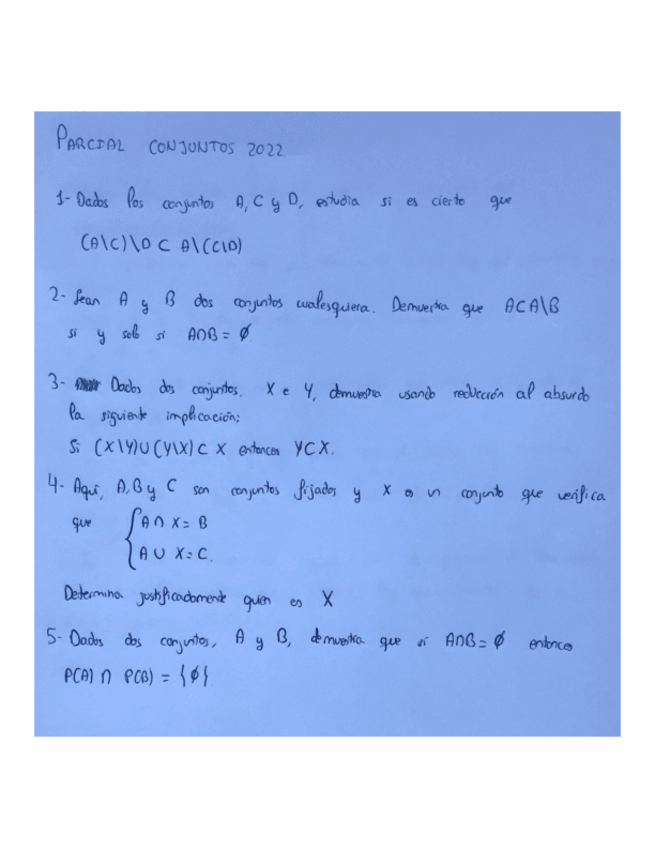 PARCIAL CONJUNTOS 2022
1- Dados los conjuntos A, C y D, estudia si es cierto que
(A\C)\D ⊂ A\(C\D)
2- Sean A y B dos conjuntos cualesquiera. Demuestra que A⊂A\B
si y solo si A∩B = ∅
3- Dados dos conjuntos, X e Y, demuestra usando reducción al absurdo
la siguiente implicación:
Si (X\Y)∪(Y\X) ⊂ X entonces Y⊂X.
4- Aquí, A, B y C son conjuntos fijados y X es un conjunto que verifica
que { A ∩ X = B
A ∪ X = C.
Determina justificadamente quien es X
5- Dados dos conjuntos, A y B, demuestra que si A∩B = ∅ entonces
P(A) ∩ P(B) = {∅}